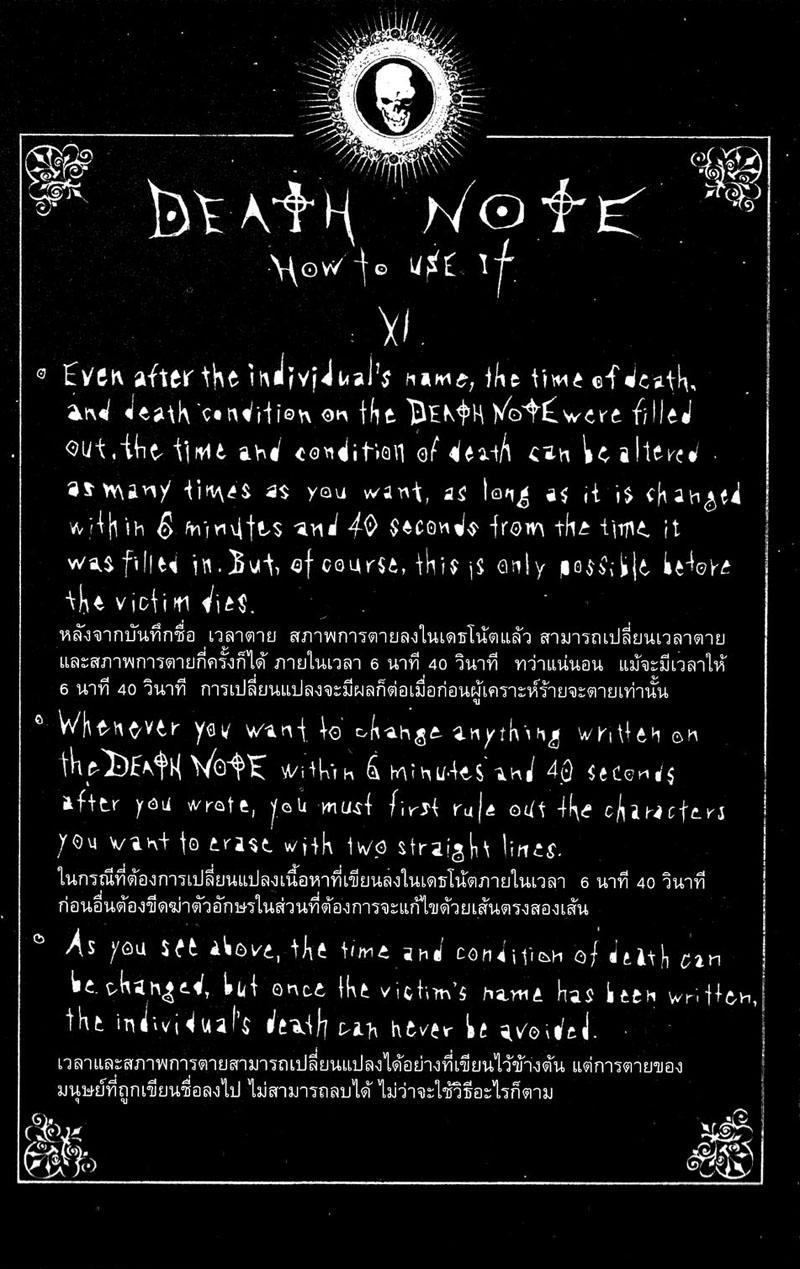 DEATH NOTE
HOW to USE It
XI
Even after the individual's name, the time of death,
and death condition on the DEATH NOTE were filled
out, the time and condition of death can be altered
as many times as you want, as long as it is changed
within 6 minutes and 40 seconds from the time it
was filled in. But, of course, this is only possible before
the victim dies.
หลังจากบันทึกชื่อ เวลาตาย สภาพการตายลงในเดธโน้ตแล้ว สามารถเปลี่ยนเวลาตาย
และสภาพการตายกี่ครั้งก็ได้ ภายในเวลา 6 นาที 40 วินาที ทว่าแน่นอน แม้จะมีเวลาให้
6 นาที 40 วินาที การเปลี่ยนแปลงจะมีผลก็ต่อเมื่อก่อนผู้เคราะห์ร้ายจะตายเท่านั้น
Whenever you want to change anything written on
the DEATH NOTE within 6 minutes and 40 seconds
after you wrote, you must first rule out the characters
you want to erase with two straight lines.
ในกรณีที่ต้องการเปลี่ยนแปลงเนื้อหาที่เขียนลงในเดธโน้ตภายในเวลา 6 นาที 40 วินาที
ก่อนอื่นต้องขีดฆ่าตัวอักษรในส่วนที่ต้องการจะแก้ไขด้วยเส้นตรงสองเส้น
As you see above, the time and condition of death can
be changed, but once the victim's name has been written,
the individual's death can never be avoided.
เวลาและสภาพการตายสามารถเปลี่ยนแปลงได้อย่างที่เขียนไว้ข้างต้น แต่การตายของ
มนุษย์ที่ถูกเขียนชื่อลงไป ไม่สามารถลบได้ ไม่ว่าจะใช้วิธีอะไรก็ตาม